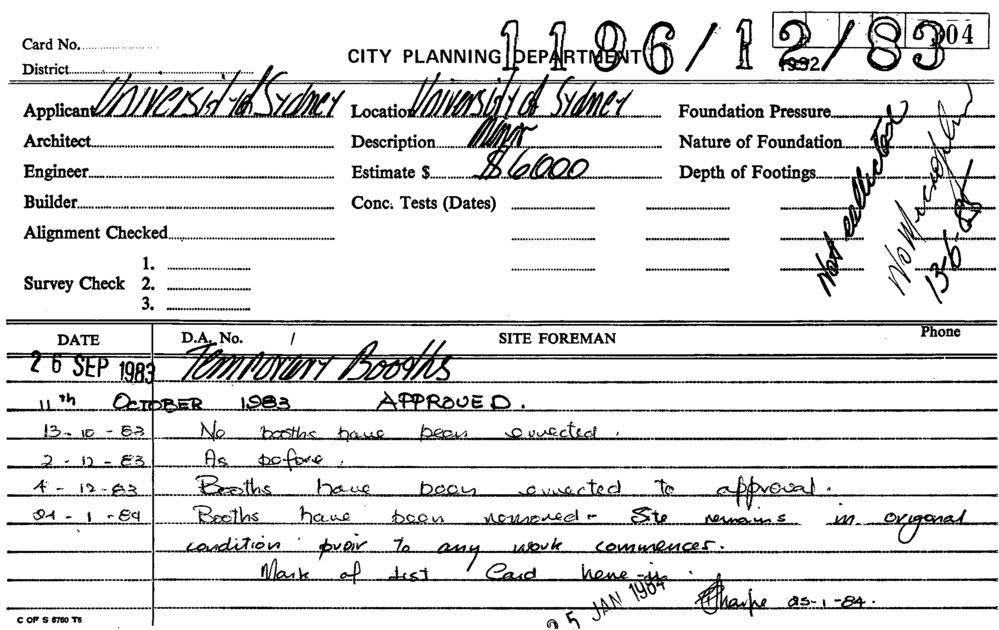 Card No.
CITY PLANNING DEPARTMENT
1186/12/83
04
District
Applicant University of Sydney Location University of Sydney Foundation Pressure
Architect Description Minor Nature of Foundation
Engineer Estimate $ $6000 Depth of Footings
Builder Conc. Tests (Dates)
Alignment Checked
Survey Check 1.
2.
3.
Not
No
13-6-85
DATE D.A. No. / SITE FOREMAN Phone
26 SEP 1983 Temporary Booths
11th OCTOBER 1983 APPROVED.
13-10-83 No booths have been errected.
2-12-83 As before.
4-12-83 Booths have been errected to approval.
24-1-84 Booths have been removed - Site remains in origonal
condition prior to any work commences.
Mark of List Card here-in.
25 JAN 1984
Tharpe 25-1-84.
C OF S 6760 T6